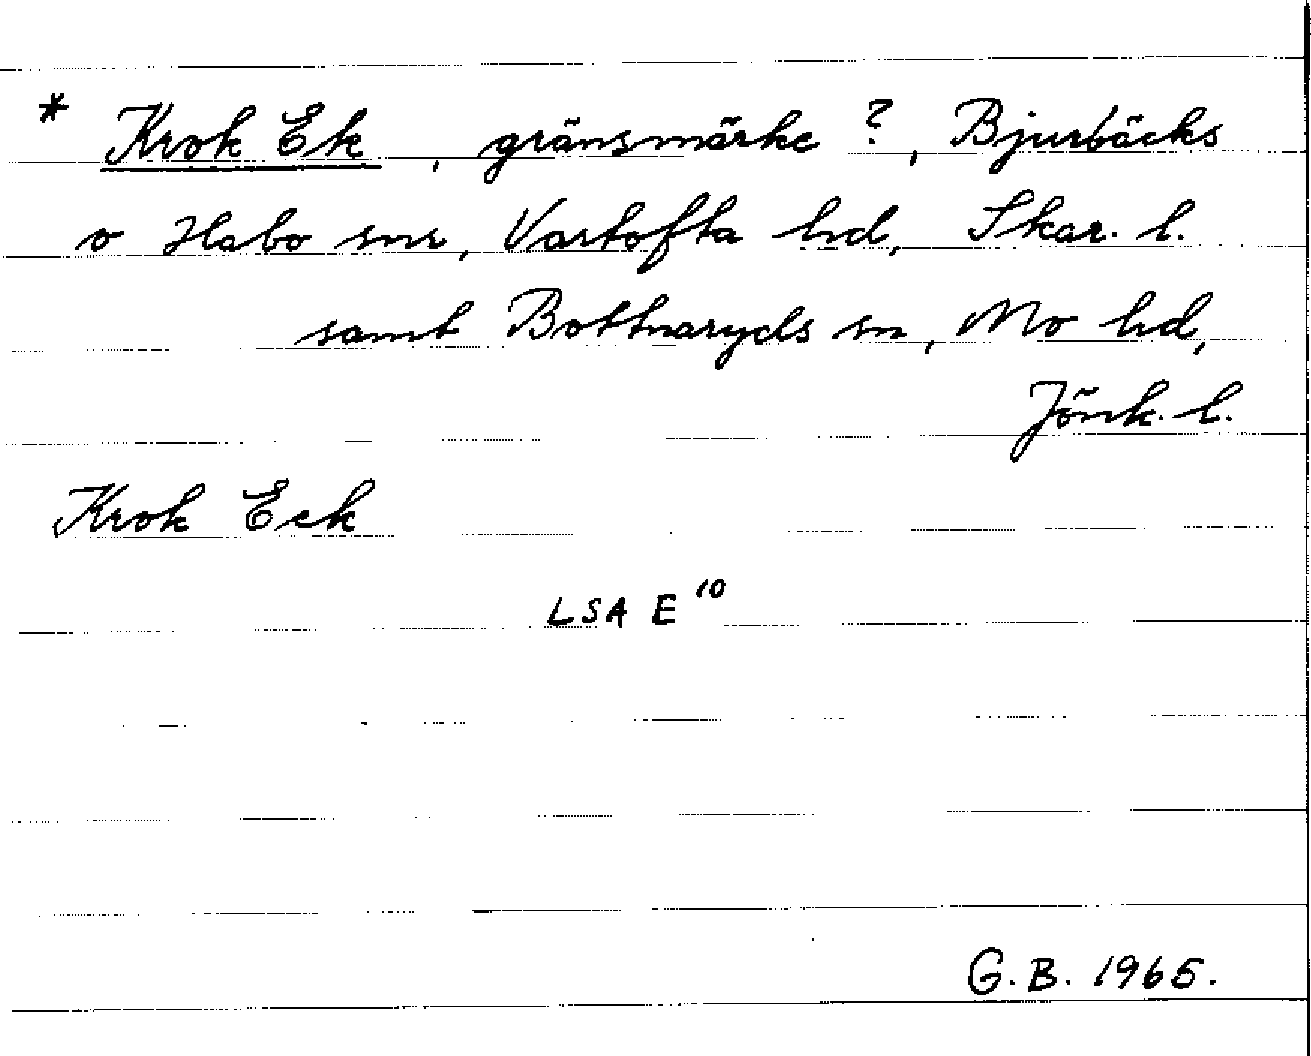 * Krok Ek, gränsmärke ?, Bjurbäcks
o Habo snr, Vartofta hd, Skar. l.
samt Bottnaryds sn, Mo hd,
Jönk. l.
Krok Eck
LSA E¹⁰
G.B. 1965.